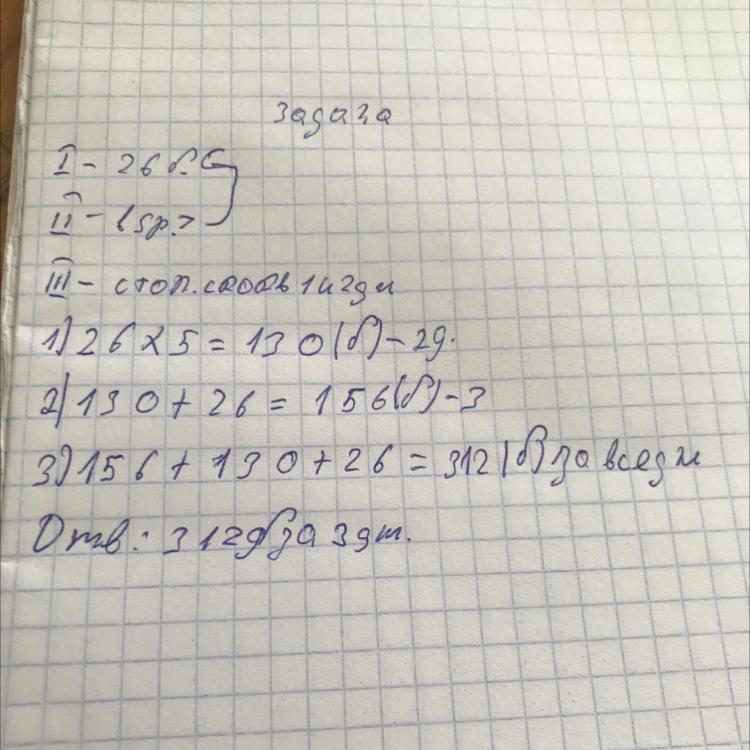 Задача
I - 26 б.
II - в 5р. >
III - стол. скоов 1 и 2 дн
1) 26 x 5 = 130 (б) - 2д.
2) 130 + 26 = 156 (б) - 3
3) 156 + 130 + 26 = 312 (б) за все дн
Отв: 312 б за 3 дн.